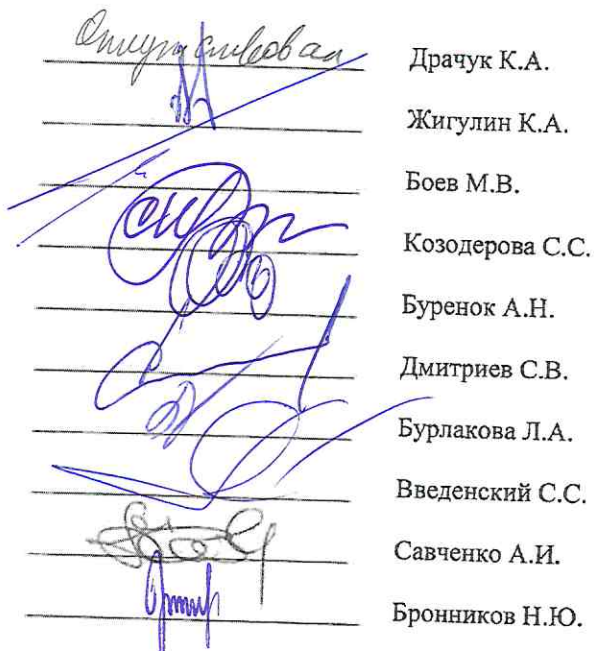 Отсутствовал Драчук К.А.
Жигулин К.А.
Боев М.В.
Козодерова С.С.
Буренок А.Н.
Дмитриев С.В.
Бурлакова Л.А.
Введенский С.С.
Савченко А.И.
Бронников Н.Ю.